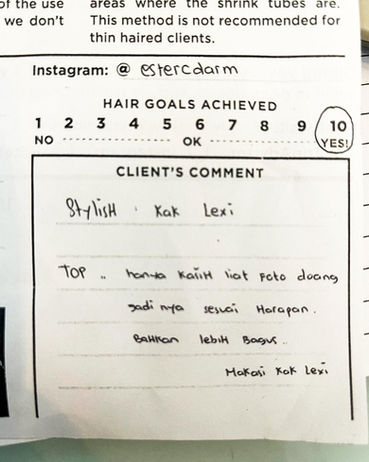 of the use
we don't
areas where the shrink tubes are.
This method is not recommended for
thin haired clients.
Instagram: @ estercdarm
HAIR GOALS ACHIEVED
1 2 3 4 5 6 7 8 9 10
NO OK YES!
CLIENT'S COMMENT
Stylist : Kak Lexi
TOP .. hanya Kasih liat Foto doang
Jadi nya sesuai Harapan.
Bahkan lebih Bagus..
Makasi Kak Lexi